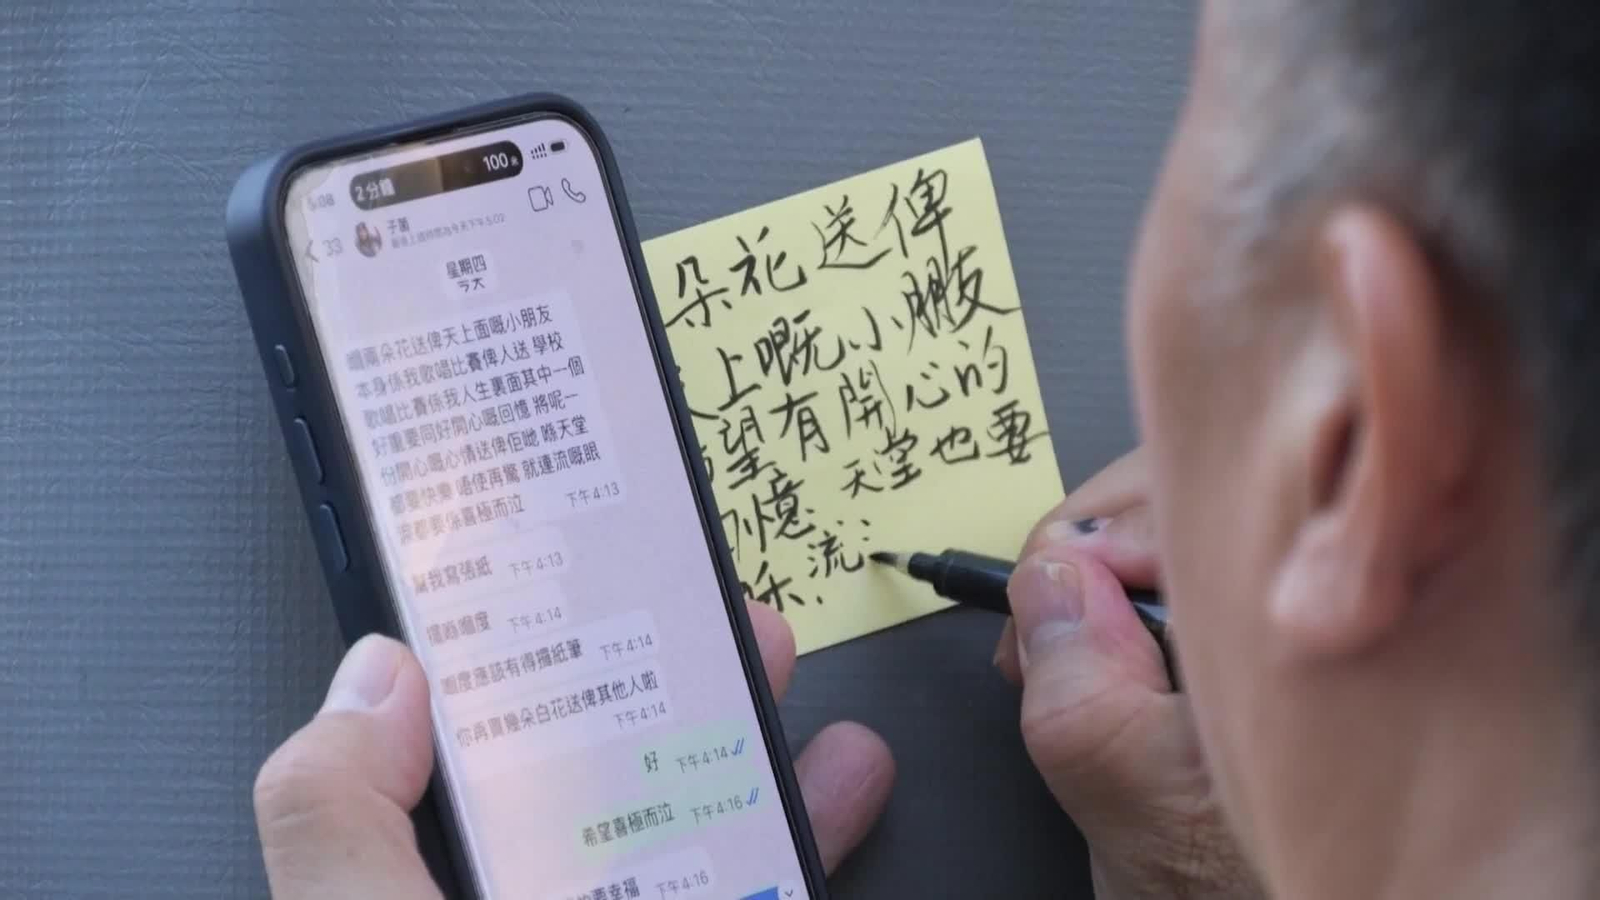 2分鐘
100
33
子茵
星期四
今天
嗰兩朵花送俾天上面嘅小朋友
本身係我歌唱比賽俾人送 學校
歌唱比賽係我人生裏面其中一個
好重要同好開心嘅回憶 將呢一
份開心嘅心情送俾佢哋 喺天堂
都要快樂 唔使再驚 就連流嘅眼
淚都要係喜極而泣
下午4:13
幫我寫張紙
下午4:13
擺喺嗰度
下午4:14
嗰度應該有得攞紙筆
下午4:14
你再買幾朵白花送俾其他人啦
下午4:14
好
下午4:14
希望喜極而泣
下午4:16
要幸福
下午4:16
朵花送俾
上嘅小朋友
望有開心的
憶 天堂也要
流